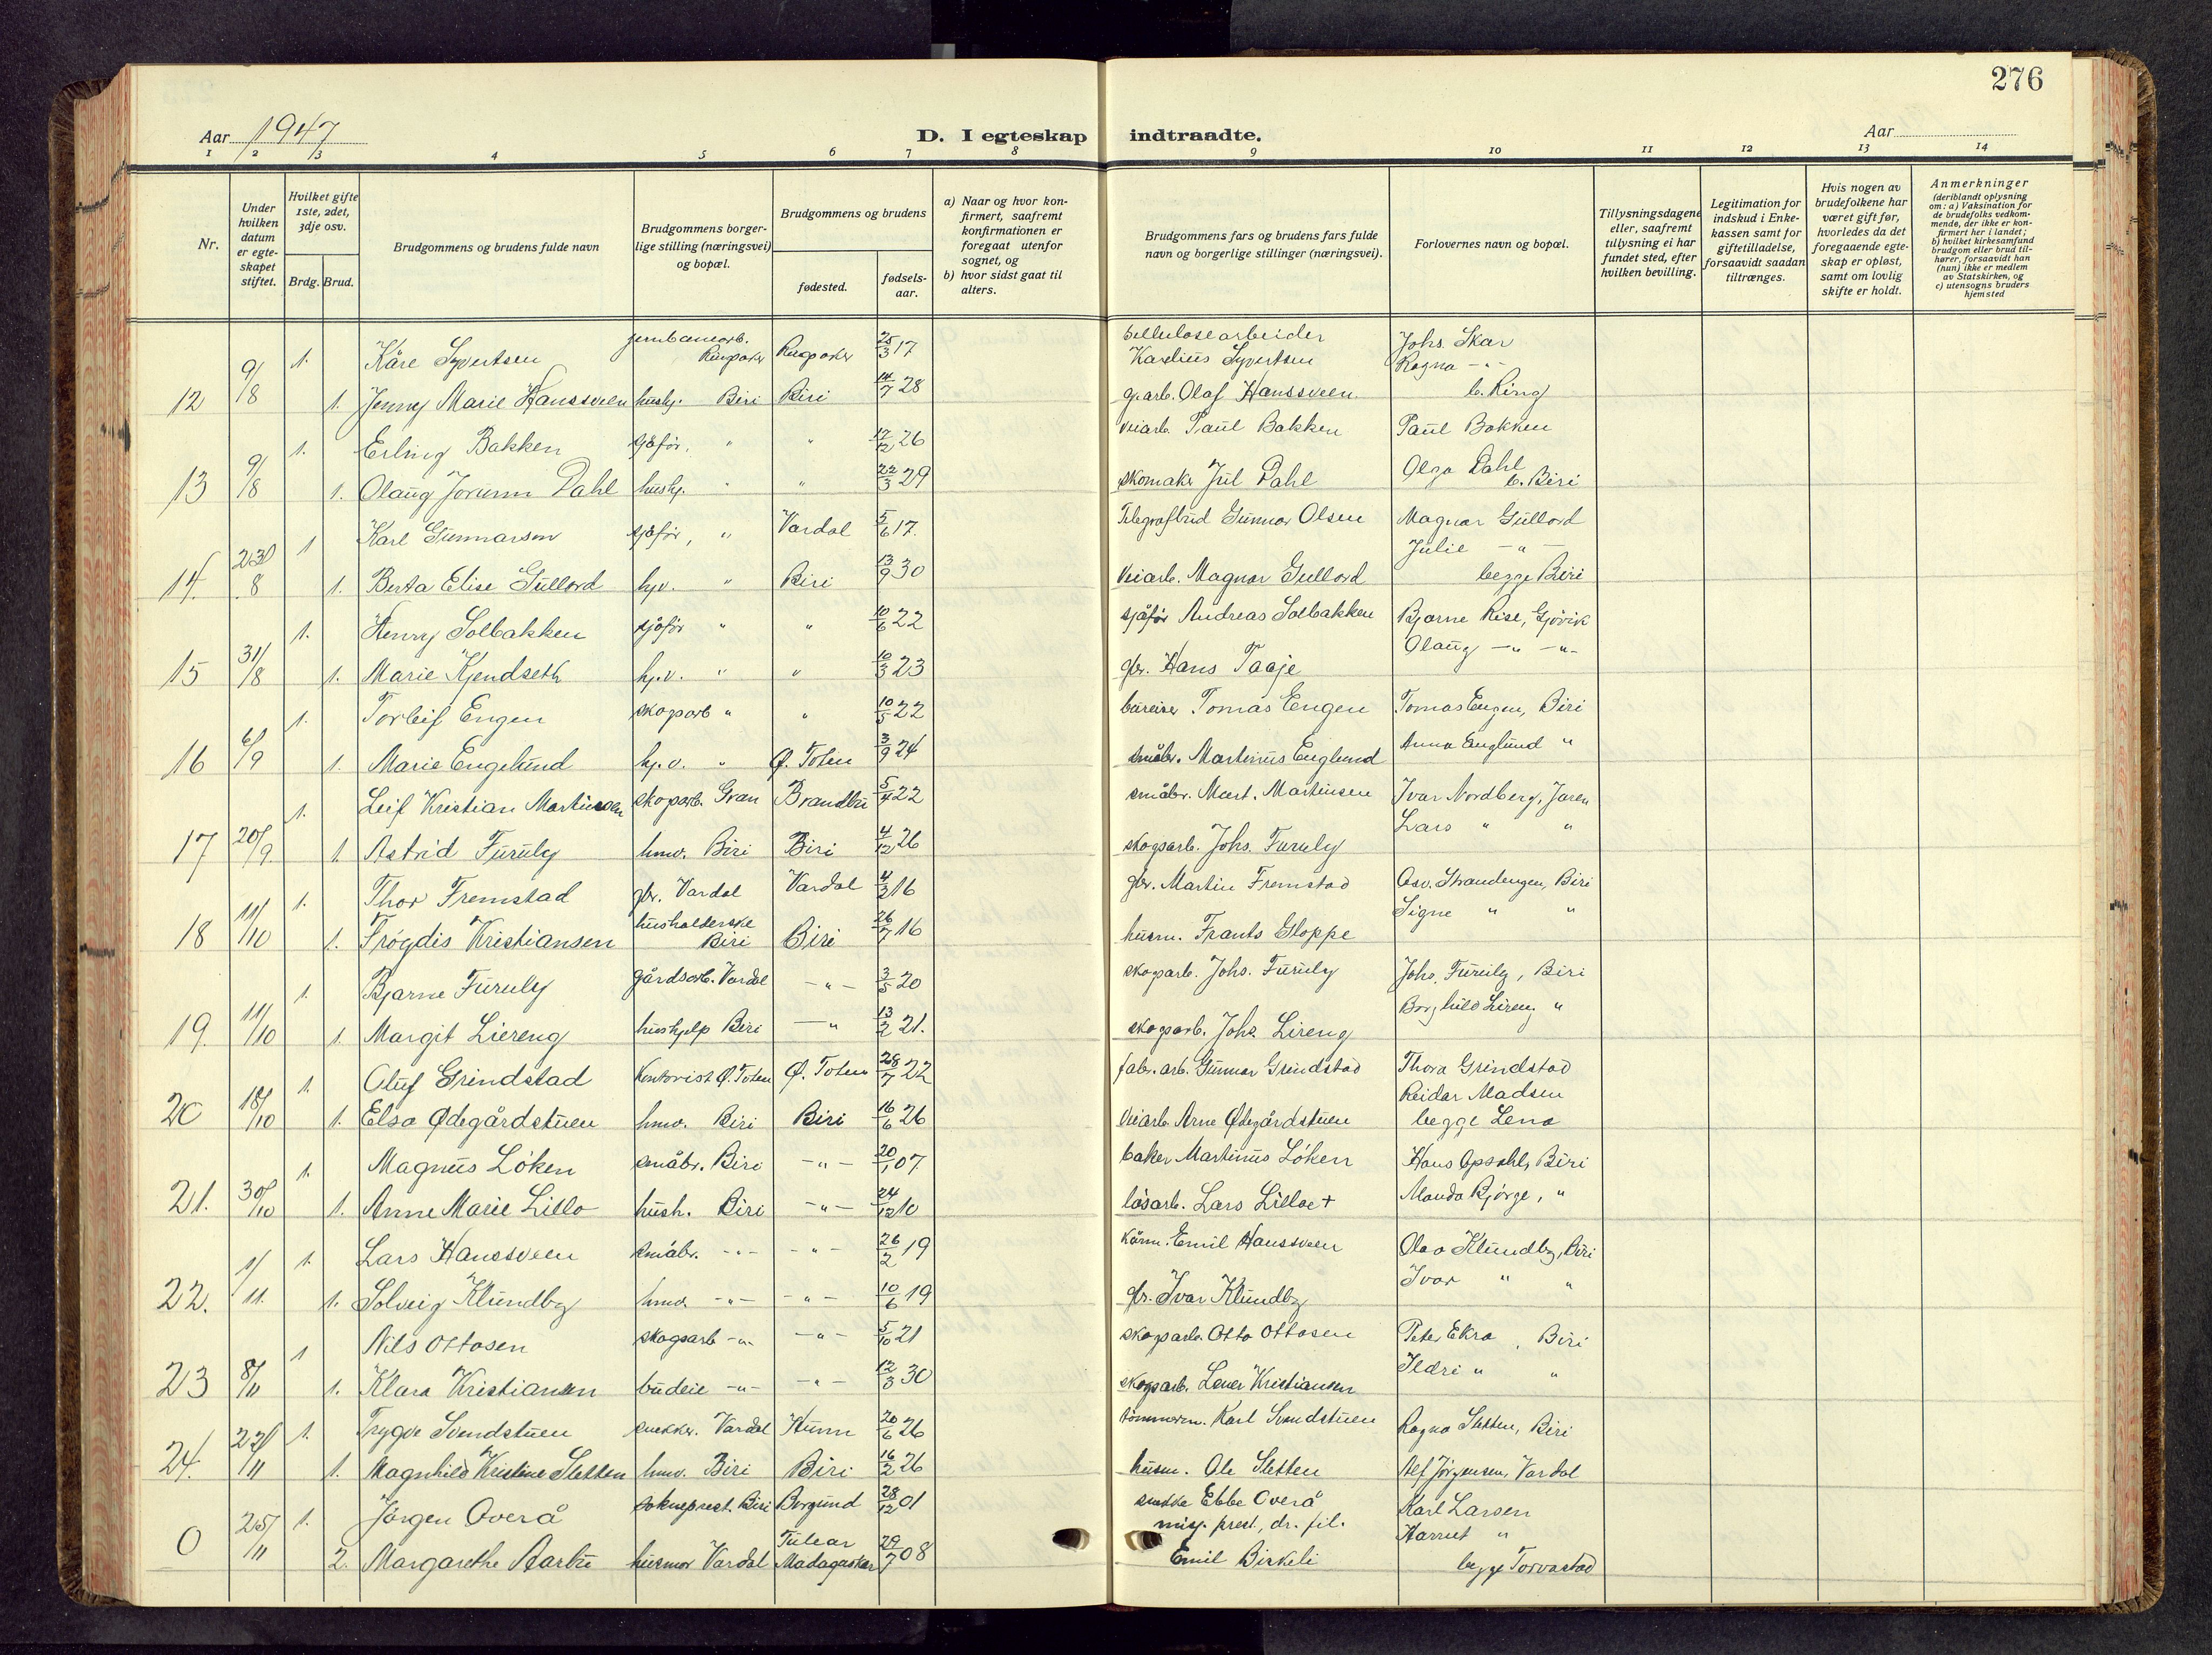 276
Aar 1947
D. I egteskap indtraadte.
Aar
1 2 3 4 5 6 7 8 9 10 11 12 13 14
Nr.
Under hvilken datum er egte-skapet stiftet.
Hvilket gifte 1ste, 2det, 3dje osv.
Brdg. Brud.
Brudgommens og brudens fulde navn
Brudgommens borger-lige stilling (næringsvei) og bopæl.
Brudgommens og brudens
fødested.
fødsels-aar.
a) Naar og hvor kon-firmert, saafremt konfirmationen er foregaat utenfor sognet, og
b) hvor sidst gaat til alters.
Brudgommens fars og brudens fars fulde navn og borgerlige stillinger (næringsvei).
Forlovernes navn og bopæl.
Tillysningsdagene eller, saafremt tillysning ei har fundet sted, efter hvilken bevilling.
Legitimation for indskud i Enke-kassen samt for giftetilladelse, forsaavidt saadan tiltrænges.
Hvis nogen av brudefolkene har været gift før, hvorledes da det foregaaende egte-skap er opløst, samt om lovlig skifte er holdt.
Anmerkninger (deriblandt oplysning om: a) Vaksination for de brudefolks vedkom-mende, der ikke er kon-firmert her i landet; b) hvilket kirkesamfund brudgom eller brud til-hører, forsaavidt han (hun) ikke er medlem av Statskirken, og c) utensogns bruders hjemsted
1. Kåre Syvertsen jernbanearb. Ringsaker Ringsaker 25/3 17 Cellulosearbeider Karelius Syvertsen Johs. Skar
Ragna -"-
12 9/8 1. Jenny Marie Hanssveen hushj. Biri Biri 14/7 28 g.arb. Olaf Hanssveen b. Ring
1. Erling Bakken sjåfør, " " 12/12 26 veiarb. Paul Bakken Paul Bakken
13 9/8 1. Olaug Jorunn Dahl hushj. " " 22/3 29 skomaker Jul Dahl Olga Dahl b. Biri
1 Karl Gunnarsen sjåfør, " Vardal 5/6 17. Telegrafbud Gunnar Olsen Magnar Gullord
Julie -"-
14. 23/8 1. Berta Elise Gullord hjv. " Biri 13/9 30 Veiarb. Magnar Gullord begge Biri
1. Henry Solbakken sjåfør " " 10/6 22 sjåfør Andreas Solbakken Bjarne Rise, Gjøvik
15 31/8 1. Marie Kjendseth hj.v. " " 10/3 23 gbr. Hans Taaje Olaug -"- -"-
1. Torleif Engen skogarb " " 10/5 22 bureiser Tomas Engen Tomas Engen, Biri
16 6/9 1. Marie Engelund hj.v. " Ø. Toten 3/9 24 småbr. Martinius Englund Anna Englund "
1. Leif Kristian Martinsen skogarb. Gran Brandbu 5/4 22 småbr. Mart. Martinsen Ivar Nordberg, Jaren
17 20/9. 1. Astrid Furuly hmv. Biri Biri 4/12 26 skogsarb. Johs. Furuly Lars " "
1. Thor Fremstad gbr. Vardal Vardal 4/3 16 gbr. Martin Fremstad Osv. Strandengen, Biri
18 11/10 1. Frøydis Kristiansen husholderske Biri Biri 26/7 16 husm. Frants Gloppe Signe " "
1. Bjarne Furuly gårdsarb. Vardal -"- 3/5 20 skogsarb. Johs. Furuly Johs. Furuly, Biri
19. 11/10 1. Margit Liereng hushjelp Biri -"- 13/2 21. skogsarb. Johs. Lireng Borghild Lireng "
1. Oluf Grindstad Kontorist Ø. Toten Ø. Toten 28/7 22 fabr.arb. Gunnar Grindstad Thora Grindstad
Reidar Madsen
20 18/10 1. Elsa Ødegårdstuen hmv. Biri Biri 16/6 26 Veiarb. Arne Ødegårdstuen begge Lena
1. Magnus Løken småbr. Biri -"- 20/1 07 baker Martinus Løken Hans Opsahl, Biri
21. 30/10 1. Anne Marie Lillo hush. Biri -"- 24/12 10 løsarb. Lars Lilloe + Manda Bjørge, "
1. Lars Hanssveen småbr. -"- -"- 26/2 19 Kårm. Emil Hanssveen Olav Klundby, Biri
22. 1/11. 1. Solveig Klundby hmv. -"- -"- 10/6 19 gbr. Ivar Klundby Ivar " "
1 Nils Ottosen skogsarb -"- -"- 5/10 21 skogsarb. Otto Ottosen Peter Ekra, Biri
23 8/11 1. Klara Kristiansen budeie -"- -"- 12/3 30 skogsarb. Kristiansen Ildri " "
1. Trygve Svendstuen snekker. Vardal Hunn 20/6 26 tømmerm. Karl Svendstuen Ragna Sletten, Biri
24. 22/11 1. Magnhild Kristine Sletten hmv. Biri Biri 16/2 26 husm. Ole Sletten Alf Jørgensen, Vardal
1. Jørgen Overå sokneprest. Biri Borgund 28/12 01 Ebbe Overå Karl Larsen
misj. prest, dr. fil. Harriet "
0 25/11 2. Margarethe Aarbu husmor Vardal Tulear Madagaskar 29/7 08 Emil Birkeli begge Torvastad